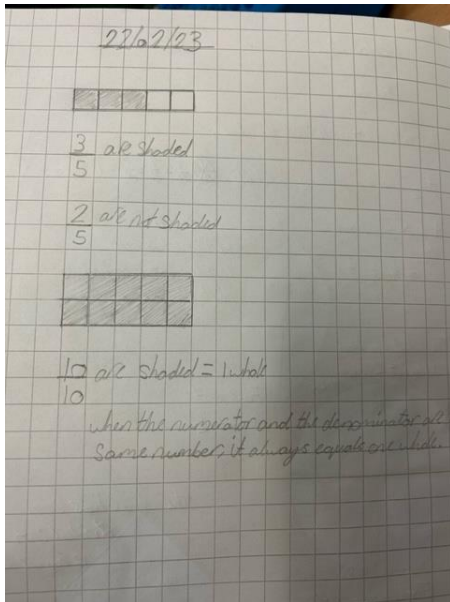 22/02/23
3/5 are shaded
2/5 are not shaded
10/10 are shaded = 1 whole
when the numerator and the denominator are
Same number, it always equals one whole.